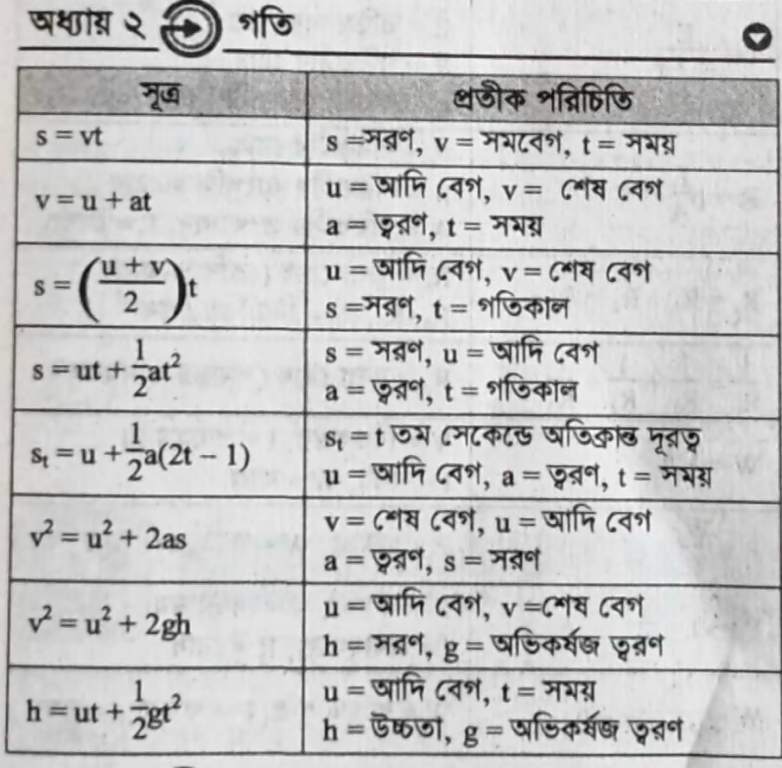 অধ্যায় ২ গতি
সূত্র প্রতীক পরিচিতি
s = vt s =সরণ, v = সমবেগ, t = সময়
v = u + at u = আদি বেগ, v = শেষ বেগ
a = ত্বরণ, t = সময়
s = ((u + v)/2)t u = আদি বেগ, v = শেষ বেগ
s =সরণ, t = গতিকাল
s = ut + ½at² s = সরণ, u = আদি বেগ
a = ত্বরণ, t = গতিকাল
sₜ = u + ½a(2t − 1) sₜ = t তম সেকেন্ডে অতিক্রান্ত দূরত্ব
u = আদি বেগ, a = ত্বরণ, t = সময়
v² = u² + 2as v = শেষ বেগ, u = আদি বেগ
a = ত্বরণ, s = সরণ
v² = u² + 2gh u = আদি বেগ, v =শেষ বেগ
h = সরণ, g = অভিকর্ষজ ত্বরণ
h = ut + ½gt² u = আদি বেগ, t = সময়
h = উচ্চতা, g = অভিকর্ষজ ত্বরণ